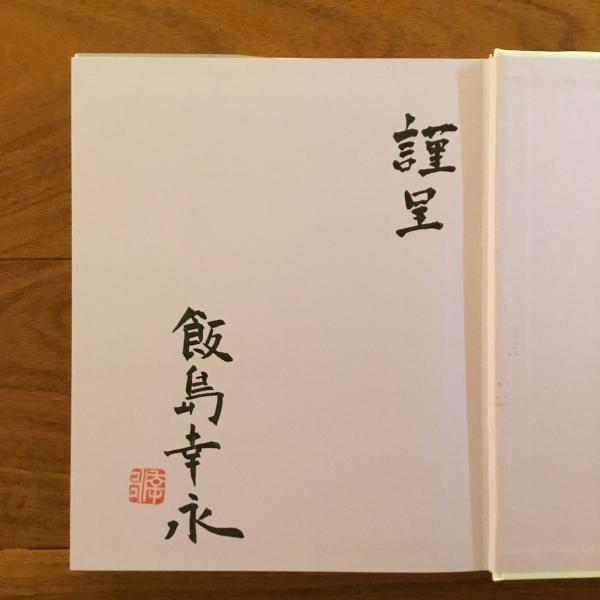 謹呈
飯島幸永